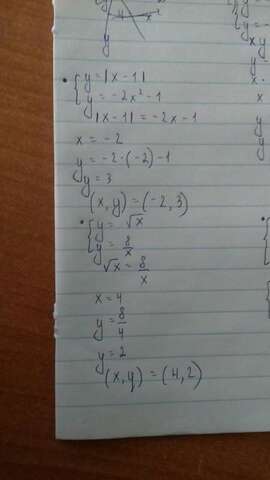 y
y
x²
y
• { y = |x - 1|
{ y = -2x² - 1
|x - 1| = -2x - 1
x = -2
y = -2 · (-2) - 1
y = 3
(x, y) = (-2, 3)
• { y = √x
{ y = 8/x
√x = 8/x
x = 4
y = 8/4
y = 2
(x, y) = (4, 2)